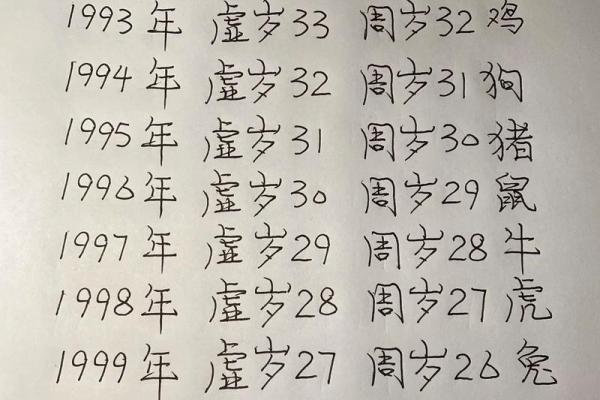 1993年 虚岁33 周岁32 鸡
1994年 虚岁32 周岁31 狗
1995年 虚岁31 周岁30 猪
1996年 虚岁30 周岁29 鼠
1997年 虚岁29 周岁28 牛
1998年 虚岁28 周岁27 虎
1999年 虚岁27 周岁26 兔